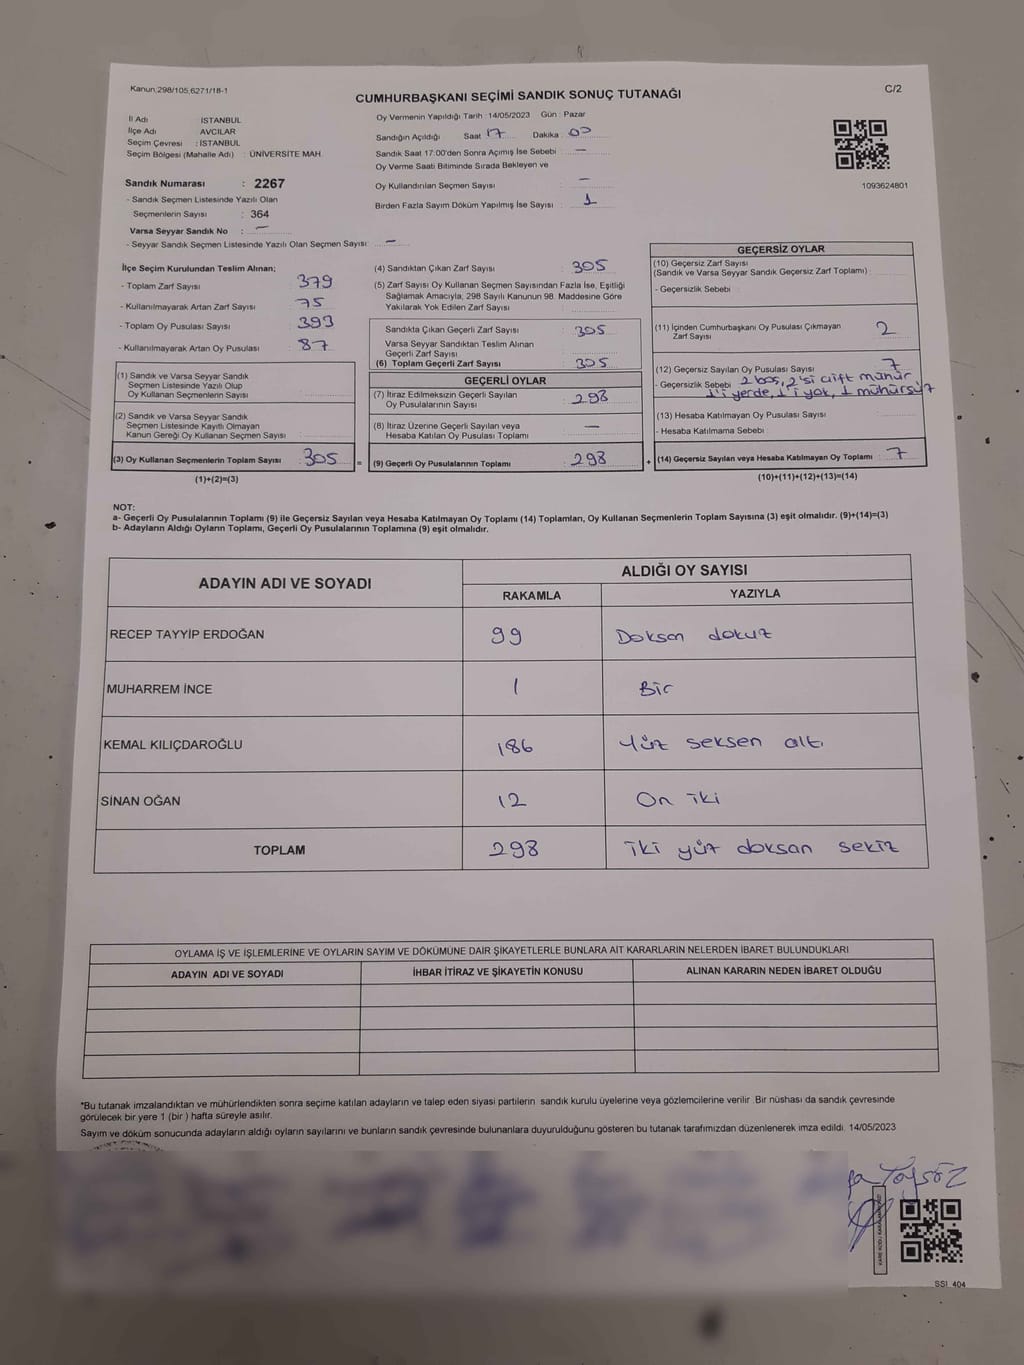 Kanun,298/105,6271/18-1
C/2
CUMHURBAŞKANI SEÇİMİ SANDIK SONUÇ TUTANAĞI
İl Adı İSTANBUL
İlçe Adı AVCILAR
Seçim Çevresi : İSTANBUL
Seçim Bölgesi (Mahalle Adı) : ÜNİVERSİTE MAH.
Sandık Numarası : 2267
- Sandık Seçmen Listesinde Yazılı Olan
Seçmenlerin Sayısı : 364
Varsa Seyyar Sandık No : —
- Seyyar Sandık Seçmen Listesinde Yazılı Olan Seçmen Sayısı: —
Oy Vermenin Yapıldığı Tarih : 14/05/2023 Gün : Pazar
Sandığın Açıldığı Saat 17 Dakika : 00
Sandık Saat 17:00'den Sonra Açımış İse Sebebi : —
Oy Verme Saati Bitiminde Sırada Bekleyen ve
Oy Kullandırılan Seçmen Sayısı —
Birden Fazla Sayım Döküm Yapılmış İse Sayısı : 1
1093624801
İlçe Seçim Kurulundan Teslim Alınan;
- Toplam Zarf Sayısı : 379
- Kullanılmayarak Artan Zarf Sayısı : 75
- Toplam Oy Pusulası Sayısı : 393
- Kullanılmayarak Artan Oy Pusulası : 87
(1) Sandık ve Varsa Seyyar Sandık
Seçmen Listesinde Yazılı Olup
Oy Kullanan Seçmenlerin Sayısı
(2) Sandık ve Varsa Seyyar Sandık
Seçmen Listesinde Kayıtlı Olmayan
Kanun Gereği Oy Kullanan Seçmen Sayısı
(3) Oy Kullanan Seçmenlerin Toplam Sayısı : 305
(1)+(2)=(3)
(4) Sandıktan Çıkan Zarf Sayısı : 305
(5) Zarf Sayısı Oy Kullanan Seçmen Sayısından Fazla İse, Eşitliği
Sağlamak Amacıyla, 298 Sayılı Kanunun 98. Maddesine Göre
Yakılarak Yok Edilen Zarf Sayısı
Sandıkta Çıkan Geçerli Zarf Sayısı : 305
Varsa Seyyar Sandıktan Teslim Alınan
Geçerli Zarf Sayısı
(6) Toplam Geçerli Zarf Sayısı : 305
GEÇERLİ OYLAR
(7) İtiraz Edilmeksizin Geçerli Sayılan
Oy Pusulalarının Sayısı : 298
(8) İtiraz Üzerine Geçerli Sayılan veya
Hesaba Katılan Oy Pusulası Toplamı : —
= (9) Geçerli Oy Pusulalarının Toplamı : 298
GEÇERSİZ OYLAR
(10) Geçersiz Zarf Sayısı
(Sandık ve Varsa Seyyar Sandık Geçersiz Zarf Toplamı)
- Geçersizlik Sebebi
(11) İçinden Cumhurbaşkanı Oy Pusulası Çıkmayan
Zarf Sayısı 2
(12) Geçersiz Sayılan Oy Pusulası Sayısı : 7
- Geçersizlik Sebebi 2 boş, 2'si çift mühür
1'i yerde, 1'i yok, 1 mühürsüz
(13) Hesaba Katılmayan Oy Pusulası Sayısı
- Hesaba Katılmama Sebebi
+ (14) Geçersiz Sayılan veya Hesaba Katılmayan Oy Toplamı : 7
(10)+(11)+(12)+(13)=(14)
NOT:
a- Geçerli Oy Pusulalarının Toplamı (9) ile Geçersiz Sayılan veya Hesaba Katılmayan Oy Toplamı (14) Toplamları, Oy Kullanan Seçmenlerin Toplam Sayısına (3) eşit olmalıdır. (9)+(14)=(3)
b- Adayların Aldığı Oyların Toplamı, Geçerli Oy Pusulalarının Toplamına (9) eşit olmalıdır.
ADAYIN ADI VE SOYADI ALDIĞI OY SAYISI
RAKAMLA YAZIYLA
RECEP TAYYİP ERDOĞAN 99 Doksan dokuz
MUHARREM İNCE 1 Bir
KEMAL KILIÇDAROĞLU 186 Yüz seksen altı
SİNAN OĞAN 12 On iki
TOPLAM 298 iki yüz doksan sekiz
OYLAMA İŞ VE İŞLEMLERİNE VE OYLARIN SAYIM VE DÖKÜMÜNE DAİR ŞİKAYETLERLE BUNLARA AİT KARARLARIN NELERDEN İBARET BULUNDUKLARI
ADAYIN ADI VE SOYADI İHBAR İTİRAZ VE ŞİKAYETİN KONUSU ALINAN KARARIN NEDEN İBARET OLDUĞU
*Bu tutanak imzalandıktan ve mühürlendikten sonra seçime katılan adayların ve talep eden siyasi partilerin sandık kurulu üyelerine veya gözlemcilerine verilir. Bir nüshası da sandık çevresinde
görülecek bir yere 1 (bir ) hafta süreyle asılır.
Sayım ve döküm sonucunda adayların aldığı oyların sayılarını ve bunların sandık çevresinde bulunanlara duyurulduğunu gösteren bu tutanak tarafımızdan düzenlenerek imza edildi. 14/05/2023
SSI_404